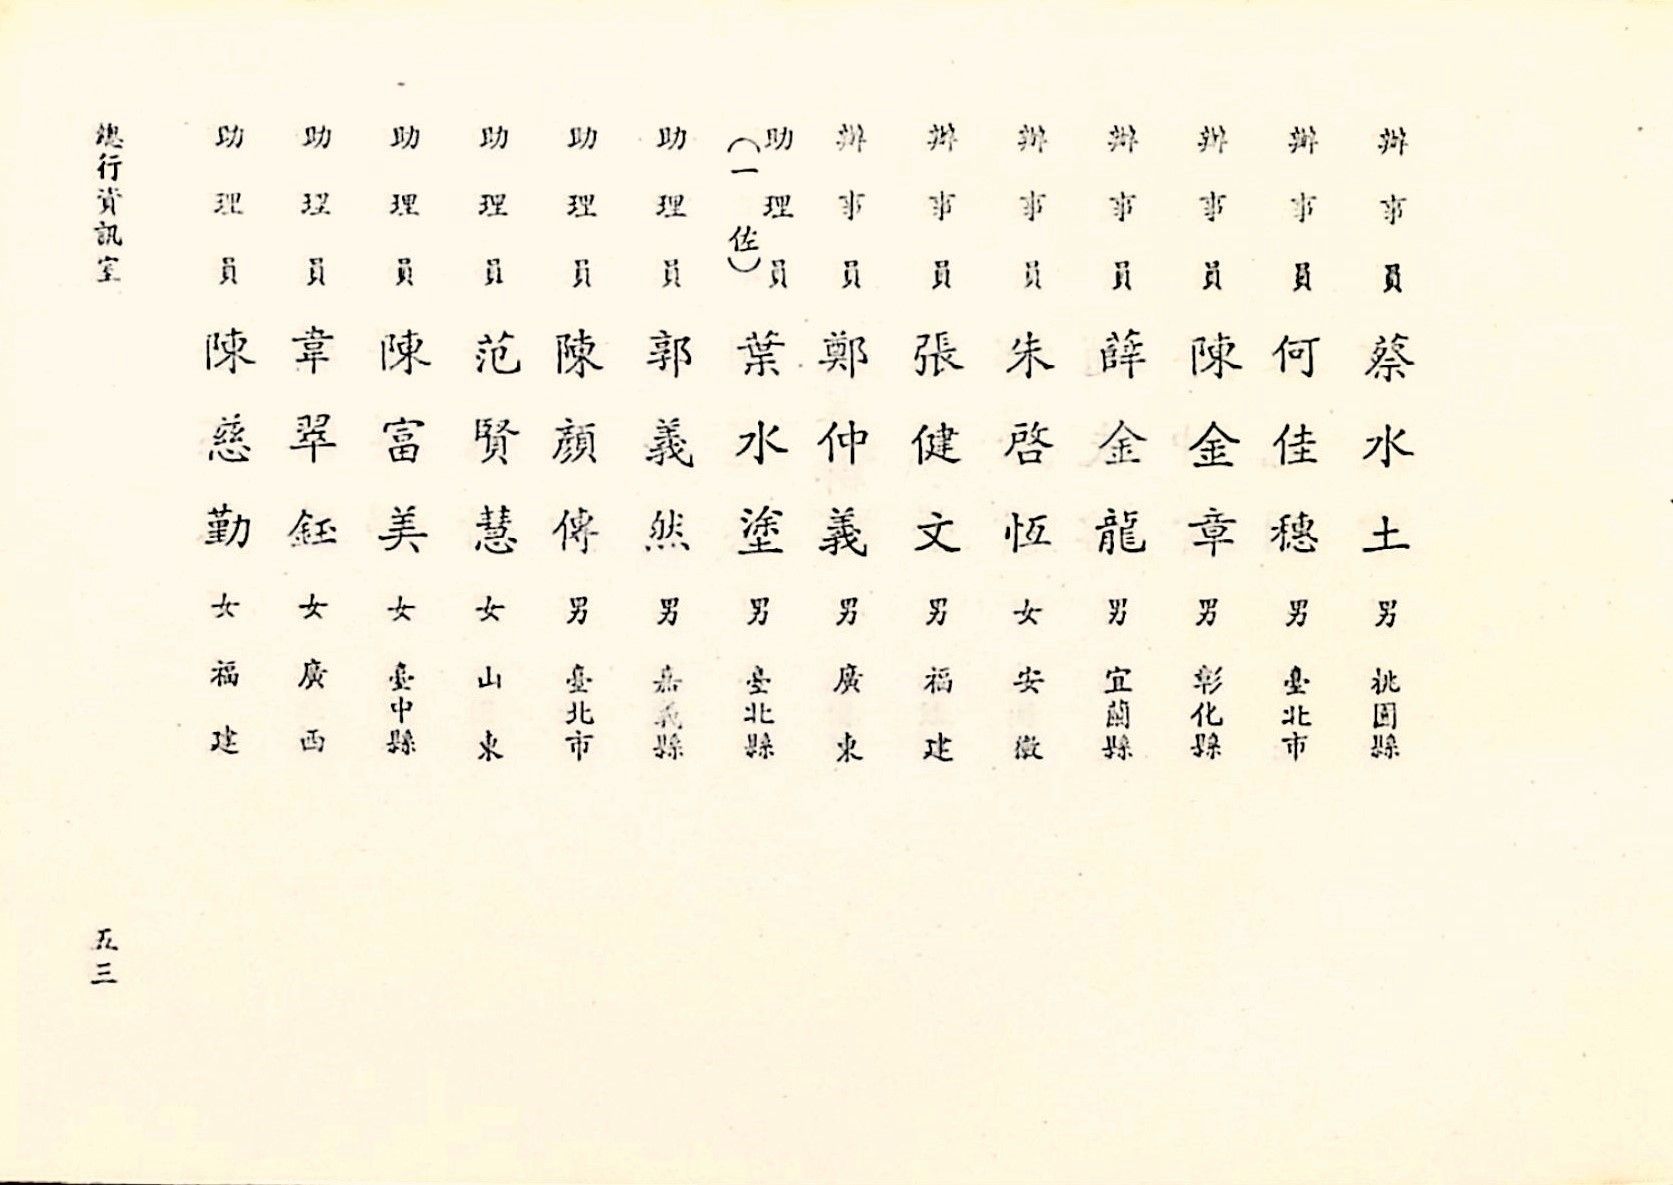 辦事員 蔡水土 男 桃園縣
辦事員 何佳穗 男 臺北市
辦事員 陳金章 男 彰化縣
辦事員 薛金龍 男 宜蘭縣
辦事員 朱啓恆 女 安徽
辦事員 張健文 男 福建
辦事員 鄭仲義 男 廣東
助理員（一佐） 葉水塗 男 臺北縣
助理員 郭義然 男 嘉義縣
助理員 陳顏傳 男 臺北市
助理員 范賢慧 女 山東
助理員 陳富美 女 臺中縣
助理員 韋翠鈺 女 廣西
助理員 陳慈勤 女 福建
總行資訊室
五三